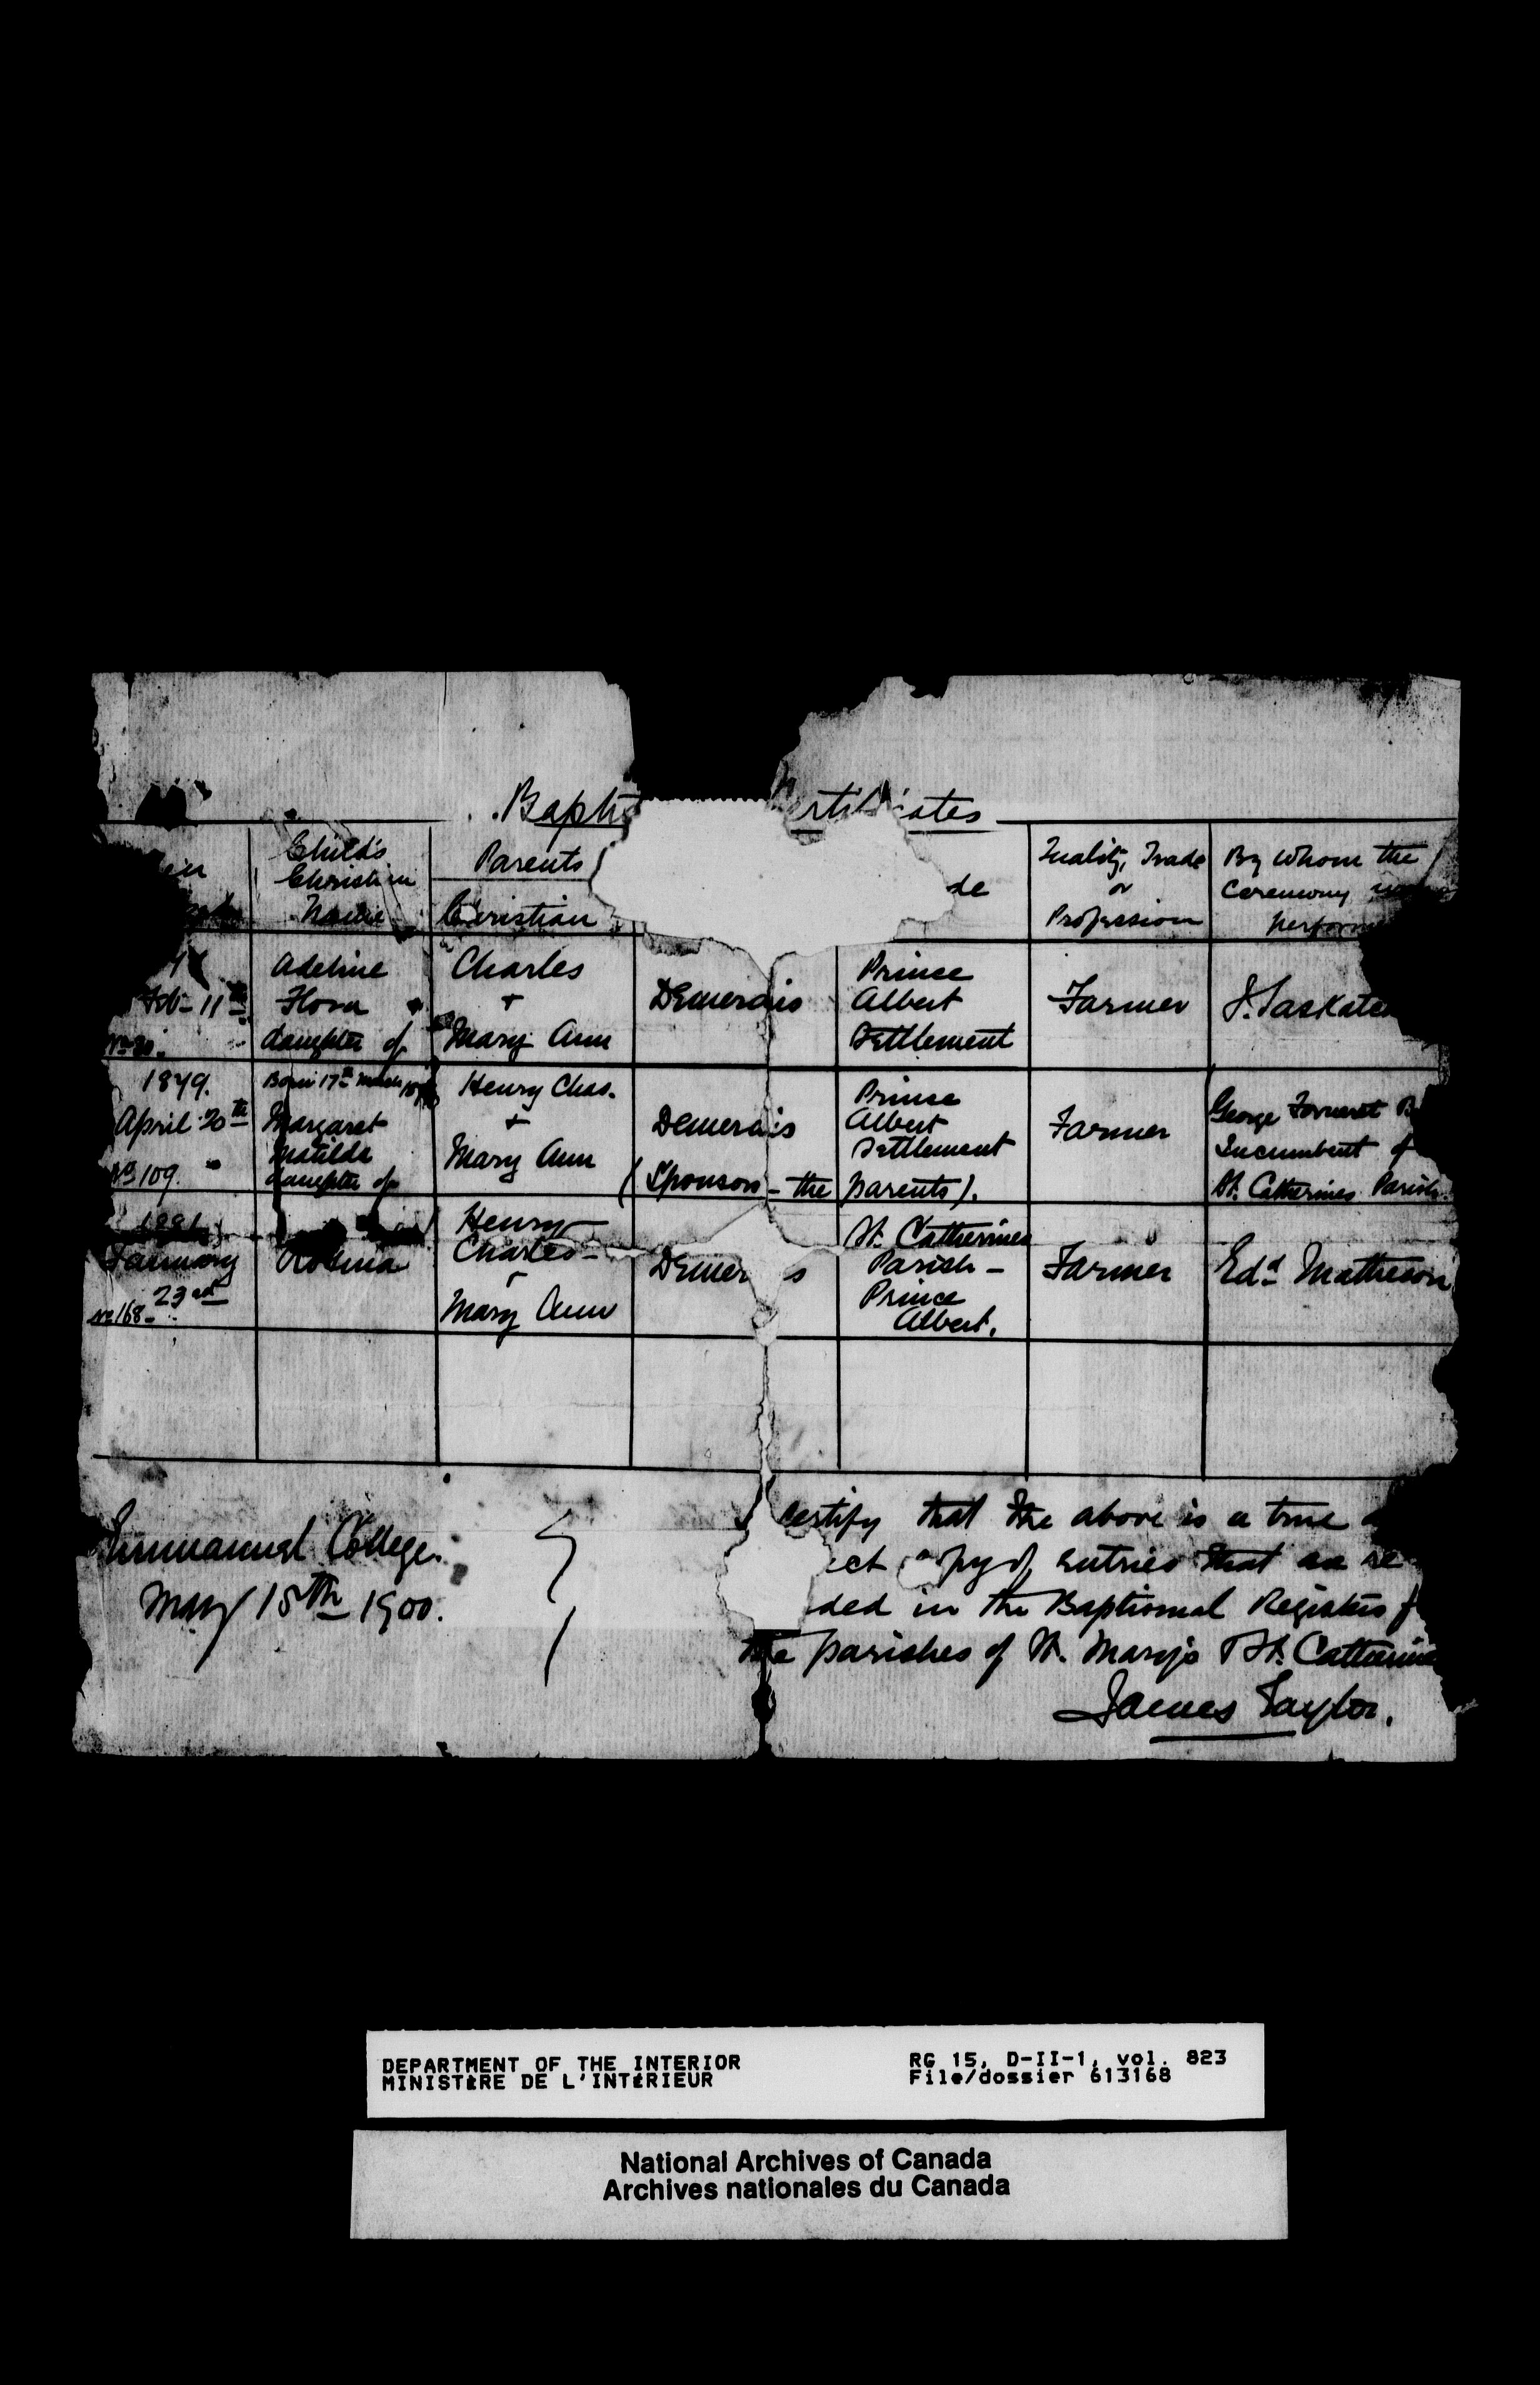 Bapti ertificates
Child's
Christian
Name
Parents
Christian
de
Quality, Trade
or
Profession
By whom the
Ceremony was
perform
Feb- 11th
No 80.
Adeline
Flora
daughter of
Charles
+
Mary Ann
Demerais
Prince
Albert
Settlement
Farmer
J. Saskatc
1879.
April 20th
No 109.
Born 17th March
Margaret
Matilda
daughter of
Henry Chas.
+
Mary Ann
Demerais
(Sponsors - the parents).
Prince
Albert
Settlement
Farmer
George Forneret B
Incumbent of
St. Catherines Parish.
1881
January
23rd
No 168-
Robina
Henry
Charles -
+
Mary Ann
Demer s
St. Catherines
Parish -
Prince
Albert.
Farmer
Edd Matheson
Emmanuel College.
May 15th 1900.
certify that the above is a true
ect copy of entries that are re
ded in the Baptismal Registers f
the parishes of St. Mary's & St. Catherine
James Taylor.
DEPARTMENT OF THE INTERIOR
MINISTÈRE DE L'INTÉRIEUR
RG 15, D-II-1, vol. 823
File/dossier 613168
National Archives of Canada
Archives nationales du Canada